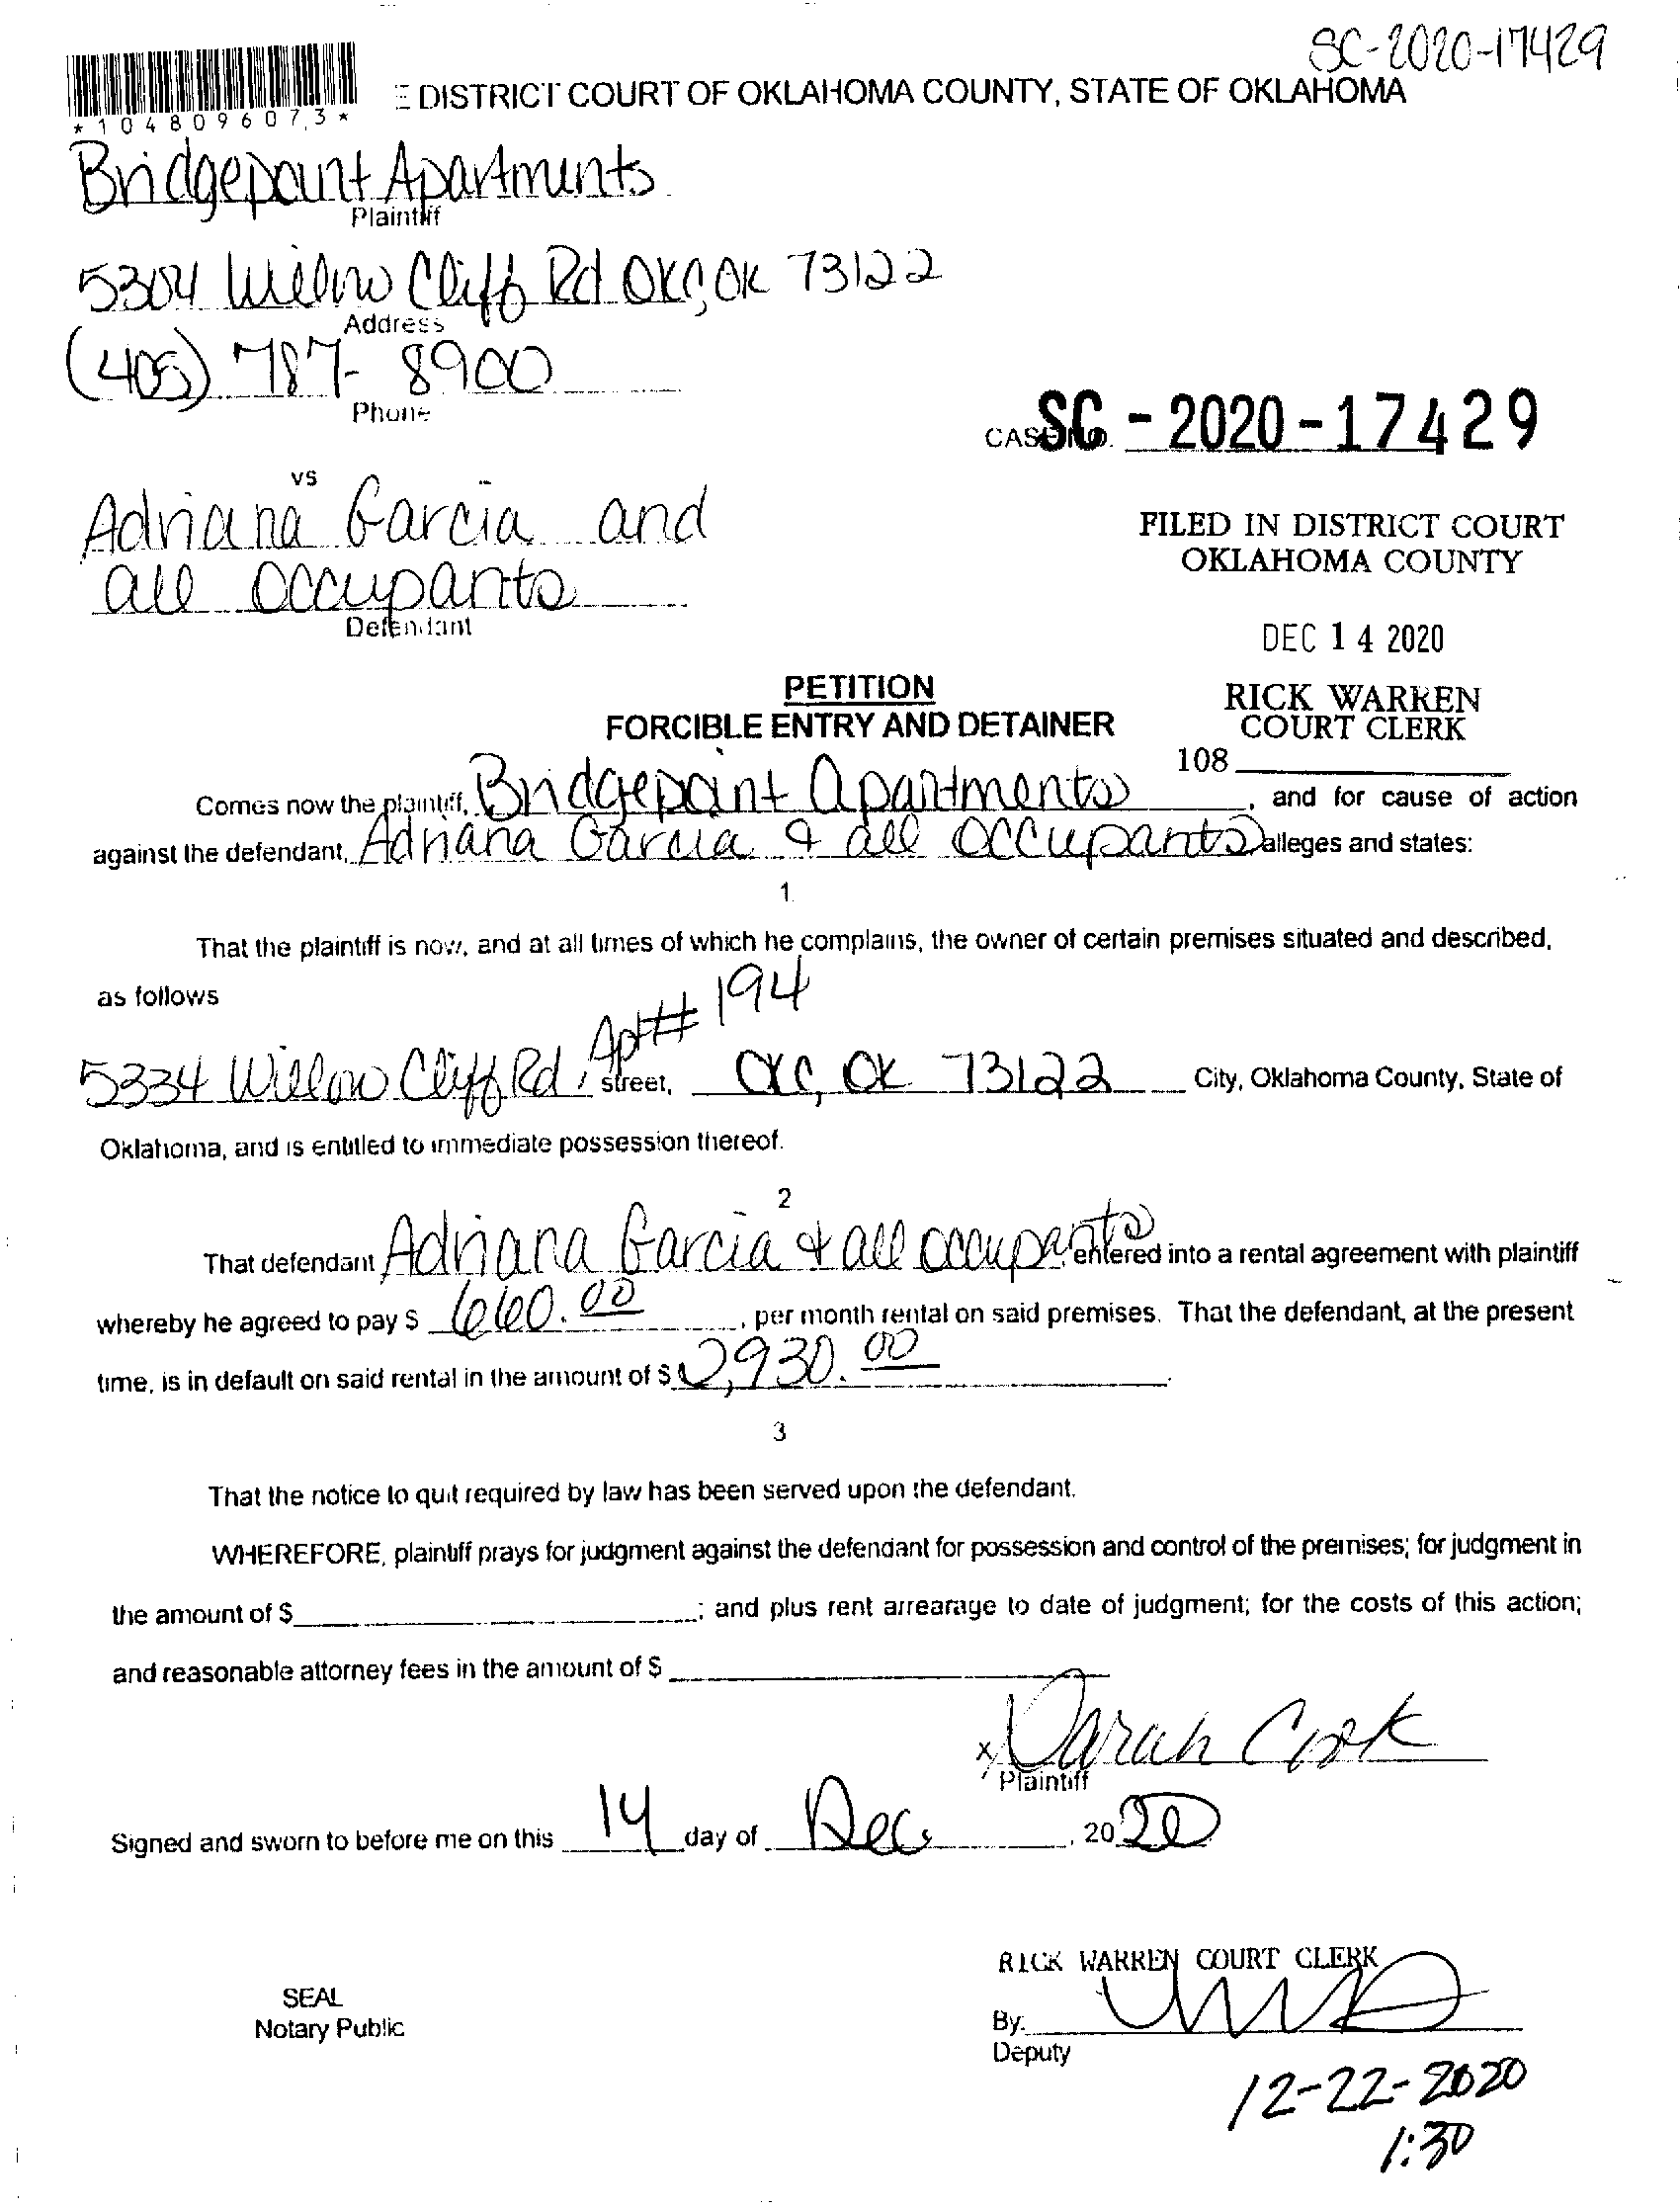 SC-2020-17429
E DISTRICT COURT OF OKLAHOMA COUNTY, STATE OF OKLAHOMA
* 1 0 4 8 0 9 6 0 7 3 *
Bridgepoint Apartments
Plaintiff
5304 Willow Cliff Rd OKC, OK 73122
Address
(405) 787-8900
Phone
CASE NO. SC - 2020 - 17429
vs
Adriana Garcia and
all occupants
Defendant
FILED IN DISTRICT COURT
OKLAHOMA COUNTY
DEC 14 2020
RICK WARREN
COURT CLERK
108
PETITION
FORCIBLE ENTRY AND DETAINER
Comes now the plaintiff, Bridgepoint Apartments, and for cause of action
against the defendant, Adriana Garcia & all occupants alleges and states:
1.
That the plaintiff is now, and at all times of which he complains, the owner of certain premises situated and described,
as follows
5334 Willow Cliff Rd, Apt# 194 street, OKC, OK 73122 City, Oklahoma County, State of
Oklahoma, and is entitled to immediate possession thereof.
2
That defendant Adriana Garcia & all occupants, entered into a rental agreement with plaintiff
whereby he agreed to pay $ 660.00, per month rental on said premises. That the defendant, at the present
time, is in default on said rental in the amount of $ 2,930.00.
3
That the notice to quit required by law has been served upon the defendant.
WHEREFORE, plaintiff prays for judgment against the defendant for possession and control of the premises; for judgment in
the amount of $ ; and plus rent arrearage to date of judgment; for the costs of this action;
and reasonable attorney fees in the amount of $
x Sarah Cook
Plaintiff
Signed and sworn to before me on this 14 day of Dec., 2020
RICK WARREN COURT CLERK
SEAL
Notary Public
By:
Deputy
12-22-2020
1:30